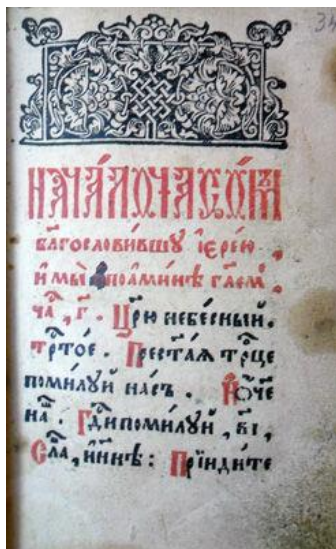 НАЧА́ЛО ЧАСО́М
бл҃гослови́вшу і҆ере́ю
и҆ мы̀ по а҆ми́нѣ гл҃ем
ча҃, г҃. Цр҃ю небе́сный.
трⷭ҇то́е. Прест҃а́ѧ трⷪ҇це
поми́луй на́съ. Ѿ́че
на́ш. Гд҃и поми́луй, в҃і,
Сла́, и҆ ны́нѣ: Прїиди́те